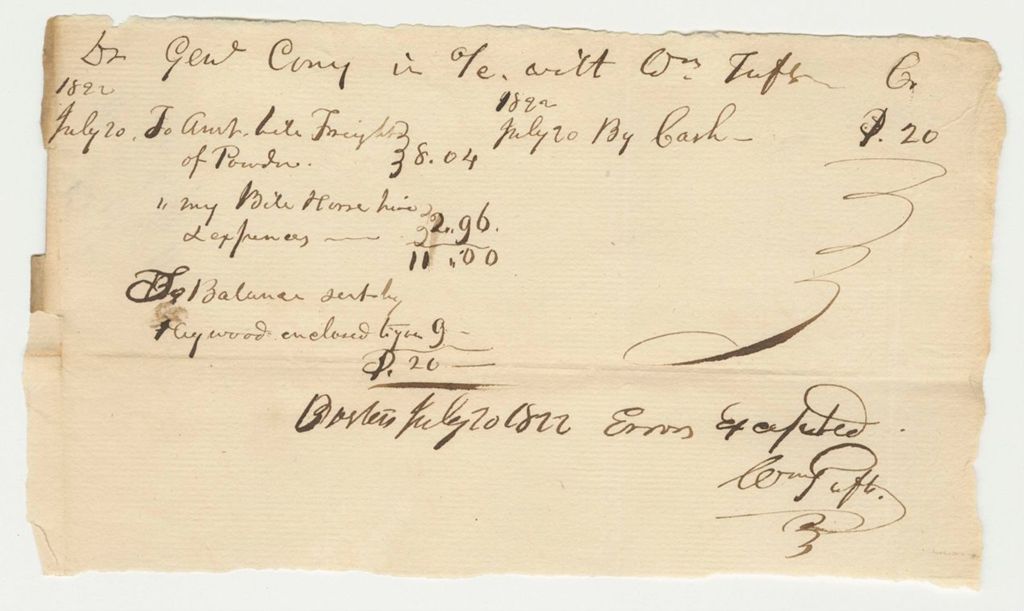 Dr Genl Cony in a/c. with Wm Tufts Cr
1822
July 20. To Amt. bill Freight
of Powder. 8.04
" my Bill Horse hire
& expences — 2.96.
11.00
To Balance sent by
Heywood enclosed to you 9 —
$. 20 —
1822
July 20 By Cash — $. 20
Boston July 20 1822 Errors Excepted.
Wm Tufts.